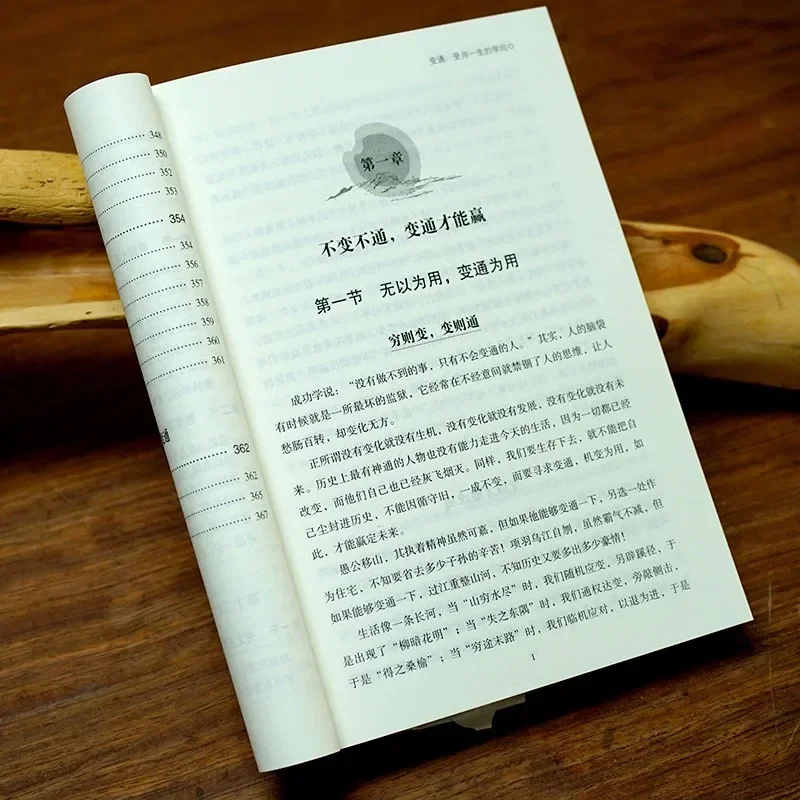 348
350
352
353
354
354
356
357
358
359
360
361
通
362
362
365
367
变通 受用一生的学问
第一章
不变不通，变通才能赢
第一节 无以为用，变通为用
穷则变，变则通
成功学说：“没有做不到的事，只有不会变通的人。”其实，人的脑袋
有时候就是一所最坏的监狱，它经常在不经意间就禁锢了人的思维，让人
愁肠百转，却变化无方。
正所谓没有变化就没有生机，没有变化就没有发展，没有变化就没有未
来。历史上最有神通的人物也没有能力走进今天的生活，因为一切都已经
改变，而他们自己也已经灰飞烟灭。同样，我们要生存下去，就不能把自
己尘封进历史，不能因循守旧，一成不变，而要寻求变通，机变为用，如
此，才能赢定未来。
愚公移山，其执着精神虽然可嘉，但如果他能够变通一下，另选一处作
为住宅，不知要省去多少子孙的辛苦！项羽乌江自刎，虽然霸气不减，但
如果能够变通一下，过江重整山河，不知历史又要多出多少豪情！
生活像一条长河，当“山穷水尽”时，我们随机应变，另辟蹊径，于
是出现了“柳暗花明”；当“失之东隅”时，我们通权达变，旁敲侧击，
于是“得之桑榆”；当“穷途末路”时，我们临机应对，以退为进，于是
1